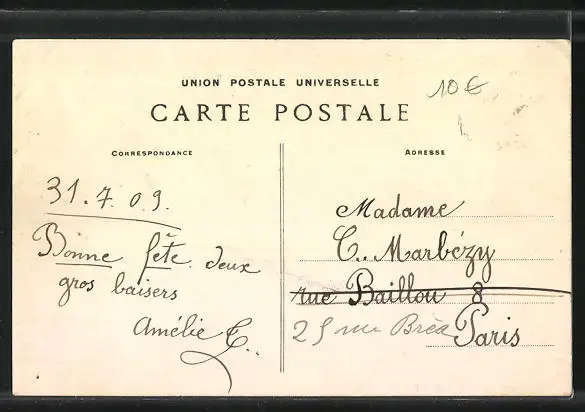 UNION POSTALE UNIVERSELLE
CARTE POSTALE
10€
CORRESPONDANCE
ADRESSE
31.7.09.
Bonne fête. deux
gros baisers
Amélie C..
Madame
C.. Marbézy
rue Baillou 8
25 rue Bréa Paris